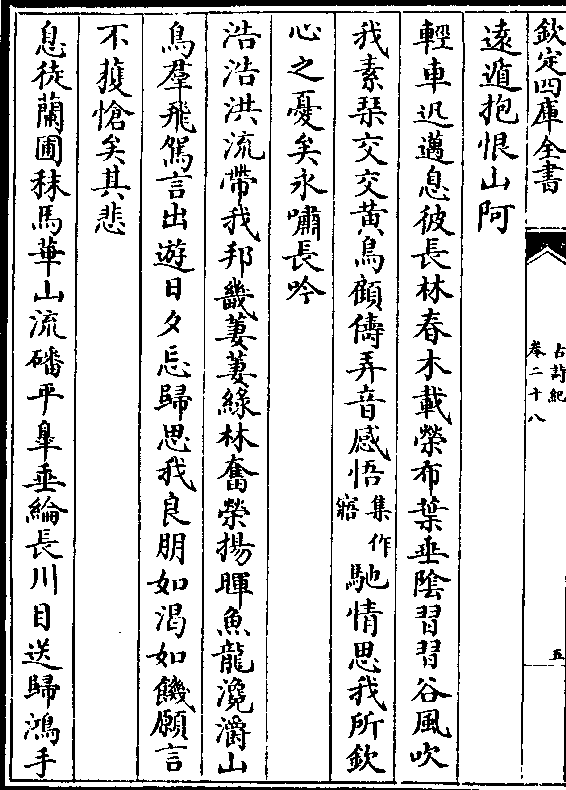 欽定四庫全書
古詩紀
卷二十八
五
遠遁抱恨山阿
輕車迅邁息彼長林春木載榮布葉垂陰習習谷風吹
我素琴交交黃鳥顧儔弄音感悟集作寤馳情思我所欽
心之憂矣永嘯長吟
浩浩洪流帶我邦畿萋萋綠林奮榮揚暉魚龍瀺灂山
鳥羣飛駕言出遊日夕忘歸思我良朋如渴如饑願言
不獲愴矣其悲
息徒蘭圃秣馬華山流磻平皐垂綸長川目送歸鴻手